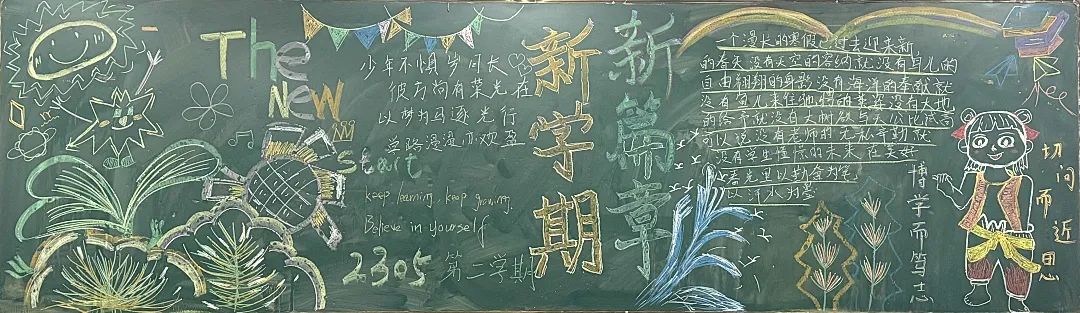 The
New
Start
少年不惧岁月长
彼方尚有荣光在
以梦为马逐光行
学路漫漫亦欢盈
keep learning, keep growing.
Believe in yourself
2305 第二学期
新学期
新篇章
一个漫长的寒假已过去迎来新
的春天没有天空的容纳就没有鸟儿的
自由翱翔的身影没有海洋的奉献就
没有鱼儿来往
没有大地
的给予就没有大树
可以说没有老师的无私辛勤就
没有学生憧憬的未来在美好
春光里以勤奋为笔
汗水为墨
博学而笃志
切问而近思